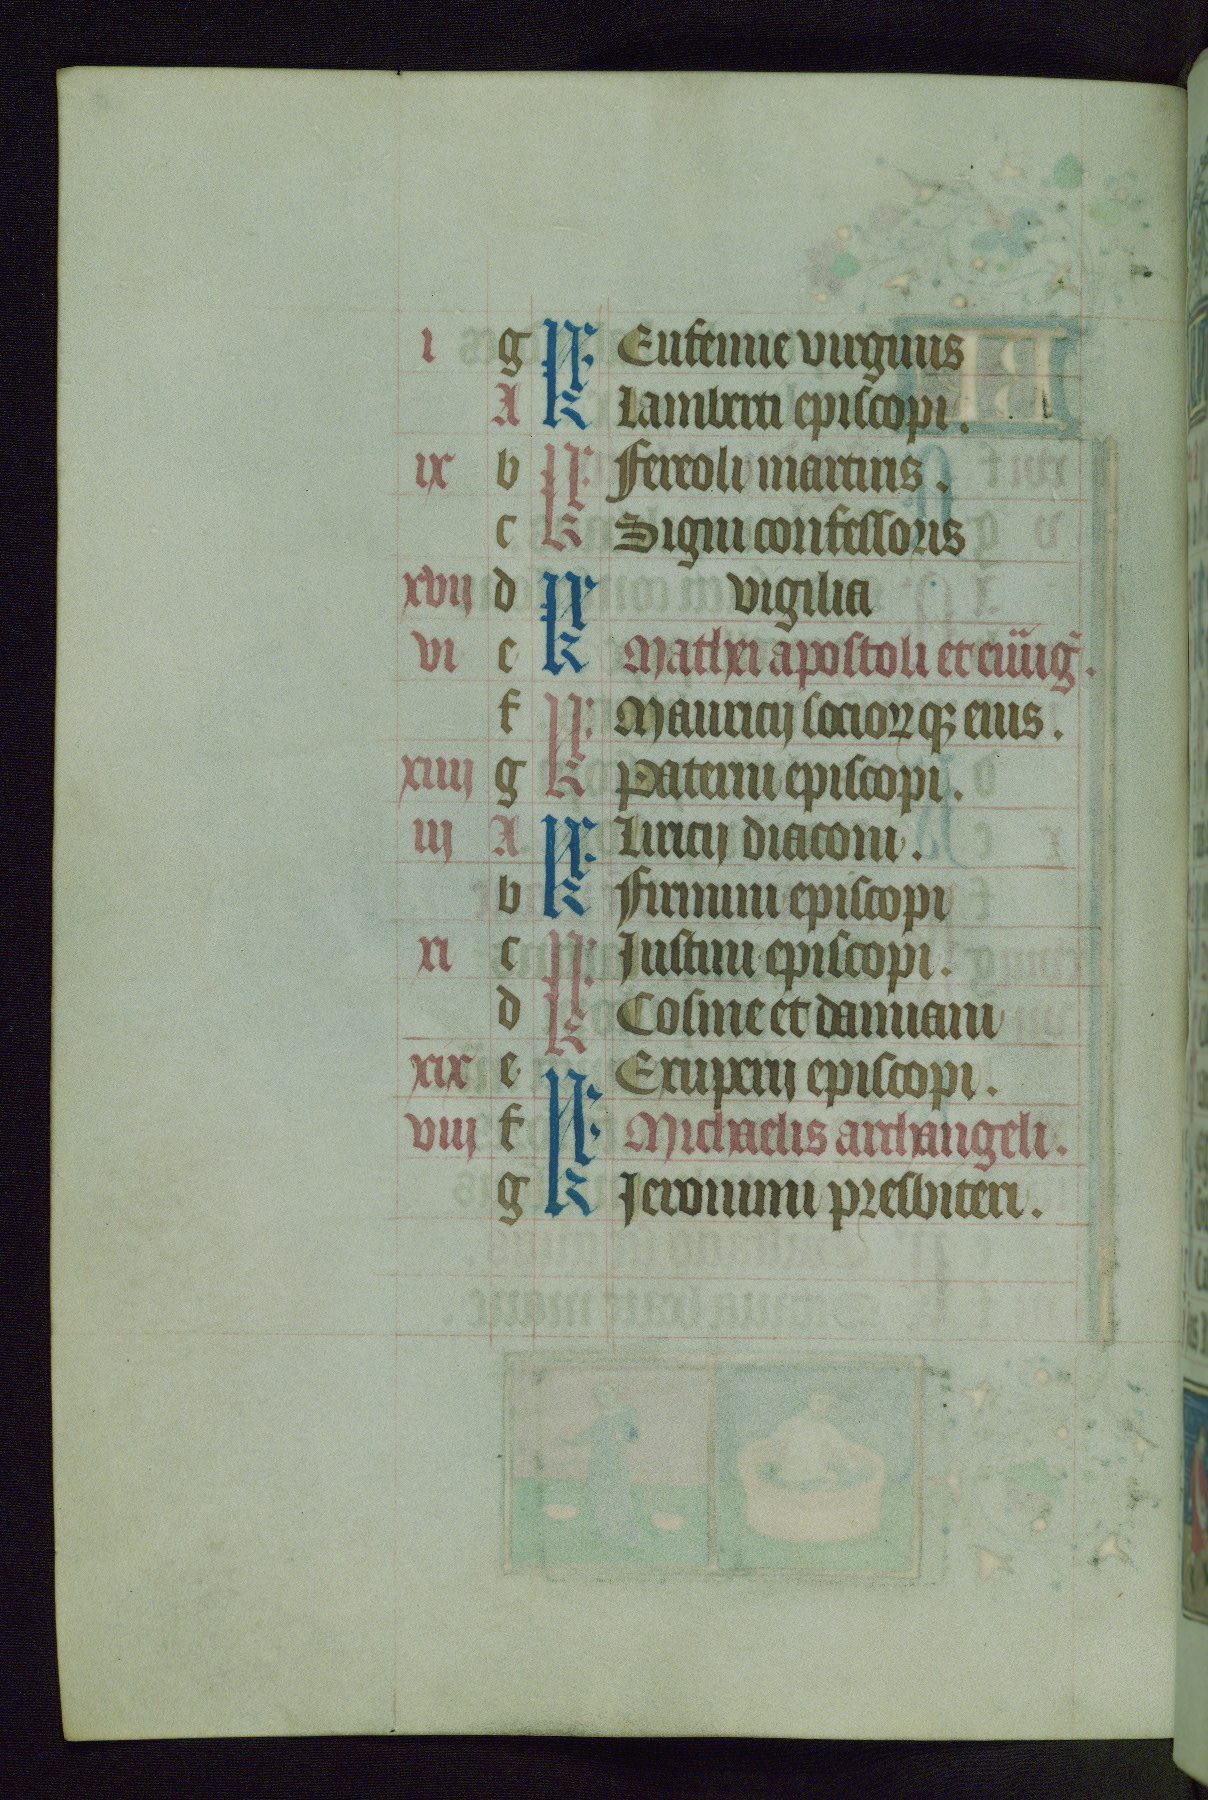 i g kl Eufemie virginis
A kl Lamberti episcopi.
ix b kl Fereoli martiris.
c kl Signi confessoris
xvij d kl vigilia
vi e kl Mathei apostoli et euuãg̃.
f kl Mauricij socioꝝ qꝫ eius.
xiiij g kl Paterni episcopi.
iij A kl Liricij diaconi.
b kl Firmini episcopi
xi c kl Justini episcopi.
d kl Cosme et damiani
xix e kl Exuperij episcopi.
viij f kl Michaelis archangeli.
g kl Jeronimi presbiteri.